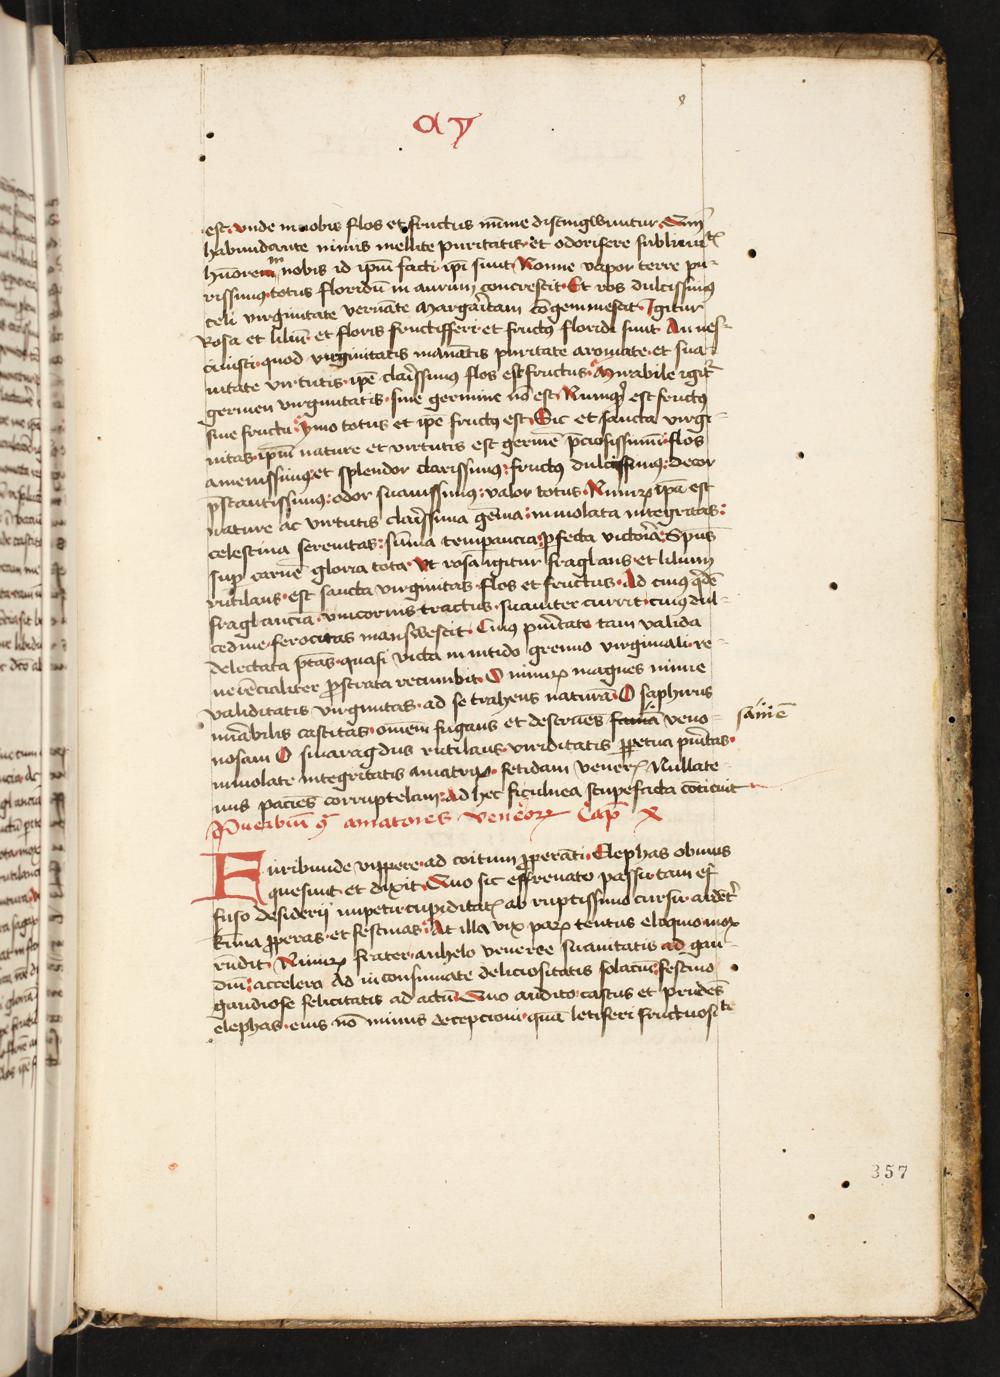 ay
est vnde in nobis flos et fructus mīme distingwuntur Qm̄
habundante nimis mellite puritatis et odorifere sublimitatꝭ
hūorem in nobis id ipm̄ facti ipi sunt Nonne vapor terre pu-
rissimꝰ totus floridū in aurum concrescit Et ros dulcissimꝰ
celi virginitate vernāte Margaͥtam cōgemmescat Igitur
Rosa et liliū et floris fructifferi et fructꝰ floridi sunt An nes-
civisti quod virginitatis manātis puritate aromate et sua-
uitate virtutis ipē claͥssimꝰ flos est fructus Mirabile igit̄
germen virginitatis sine germine nō est Numqͥd est fructꝰ
sine fructu ymo totus et ipē fructꝰ est Sic et sancta virgi-
nitas ipm̄ nature et virtutis est germē p̄ciosissimū flos
amenissimꝰ et splendor clarissimꝰ fructꝰ dulcissimꝰ decor
p̄stantissimꝰ odor suauissimꝰ valor totus Nimirꝫ ipā est
nature ac virtutis claͥssima gēma inmolata integritas
celestina serenitas sūma temp̄ancia ꝑfecta victoͥa Spūs
suꝑ carnē gloria tota Vt rosa igitur fraglans et lilium
rutilans est sancta virginitas flos et fructus Ad cuiꝰ qͥdē
fraglancia vnicornis tractus suauiter currit cuiꝰ dul-
cedine ferocitas manswescit Cuiꝰ puͥtate tam valida
delectata p̄tās quasi victa in nitido gremio virginali re-
uerēcialiter ꝓstrata recumbit O nimirꝫ magnes nimie
validitatis virginitas ad se trahens naturā O saphirus
mirabilis castitas omēm fugans et destruēs famā veno-
saniē
nosam O smaragdus rutilans viriditatis ꝑpetua puͥtas
inmolate integritatis amatrix fetidam venerꝫ Nullate-
nus paciēs corruptelam Ad hec ficulnea stupefacta conticuit
Puerbiū ꝯͣ amatores venēorꝫ Caꝑ X
Furibunde vippere ad coitum ꝓperāti Elephas obuius
quesiuit et dixit Quo sic effrenato passu tam ef
fuso desiderij impetu cupiditatꝫ abruptissimo cursu ardētͥ
ꝓperas et festinas At illa vix parꝫ tentus eloquio mox
rn̄dit Nimirꝫ frater anhelo veneree suauitatis ad gau-
diū accelero Ad inconsumate deliciositatis solaciū festino
gaudiose felicitatis ad actū Quo audito castus et prudēs
elephas eius nō minus decepcioni quā letiferi fructuosite
357